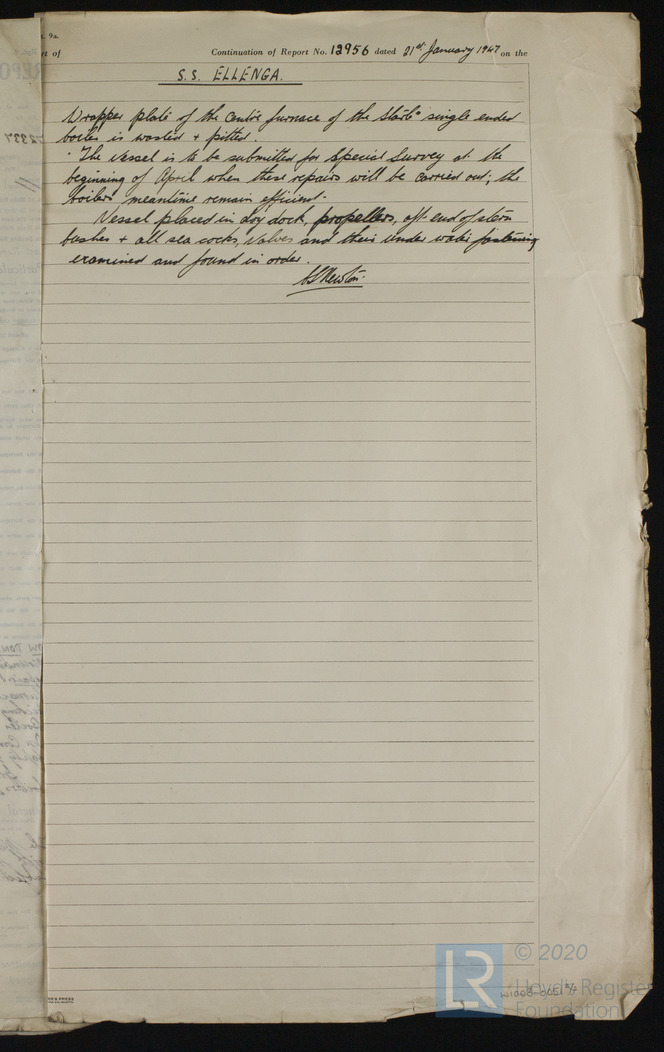 t. 9a.
rt of
Continuation of Report No. 12956 dated 21st January 1947 on the
S.S. ELLENGA.
Wrapper plate of the Centre furnace of the Starbd single ended
boiler is wasted + pitted.
The Vessel is to be submitted for Special Survey at the
beginning of April when these repairs will be carried out; the
boilers meantime remain efficient.
Vessel placed in dry dock, propellers, aft end of stern
bushes + all sea cocks, valves and their under water fastening
examined and found in order.
© 2020
LR
Lloyd's Register
Foundation